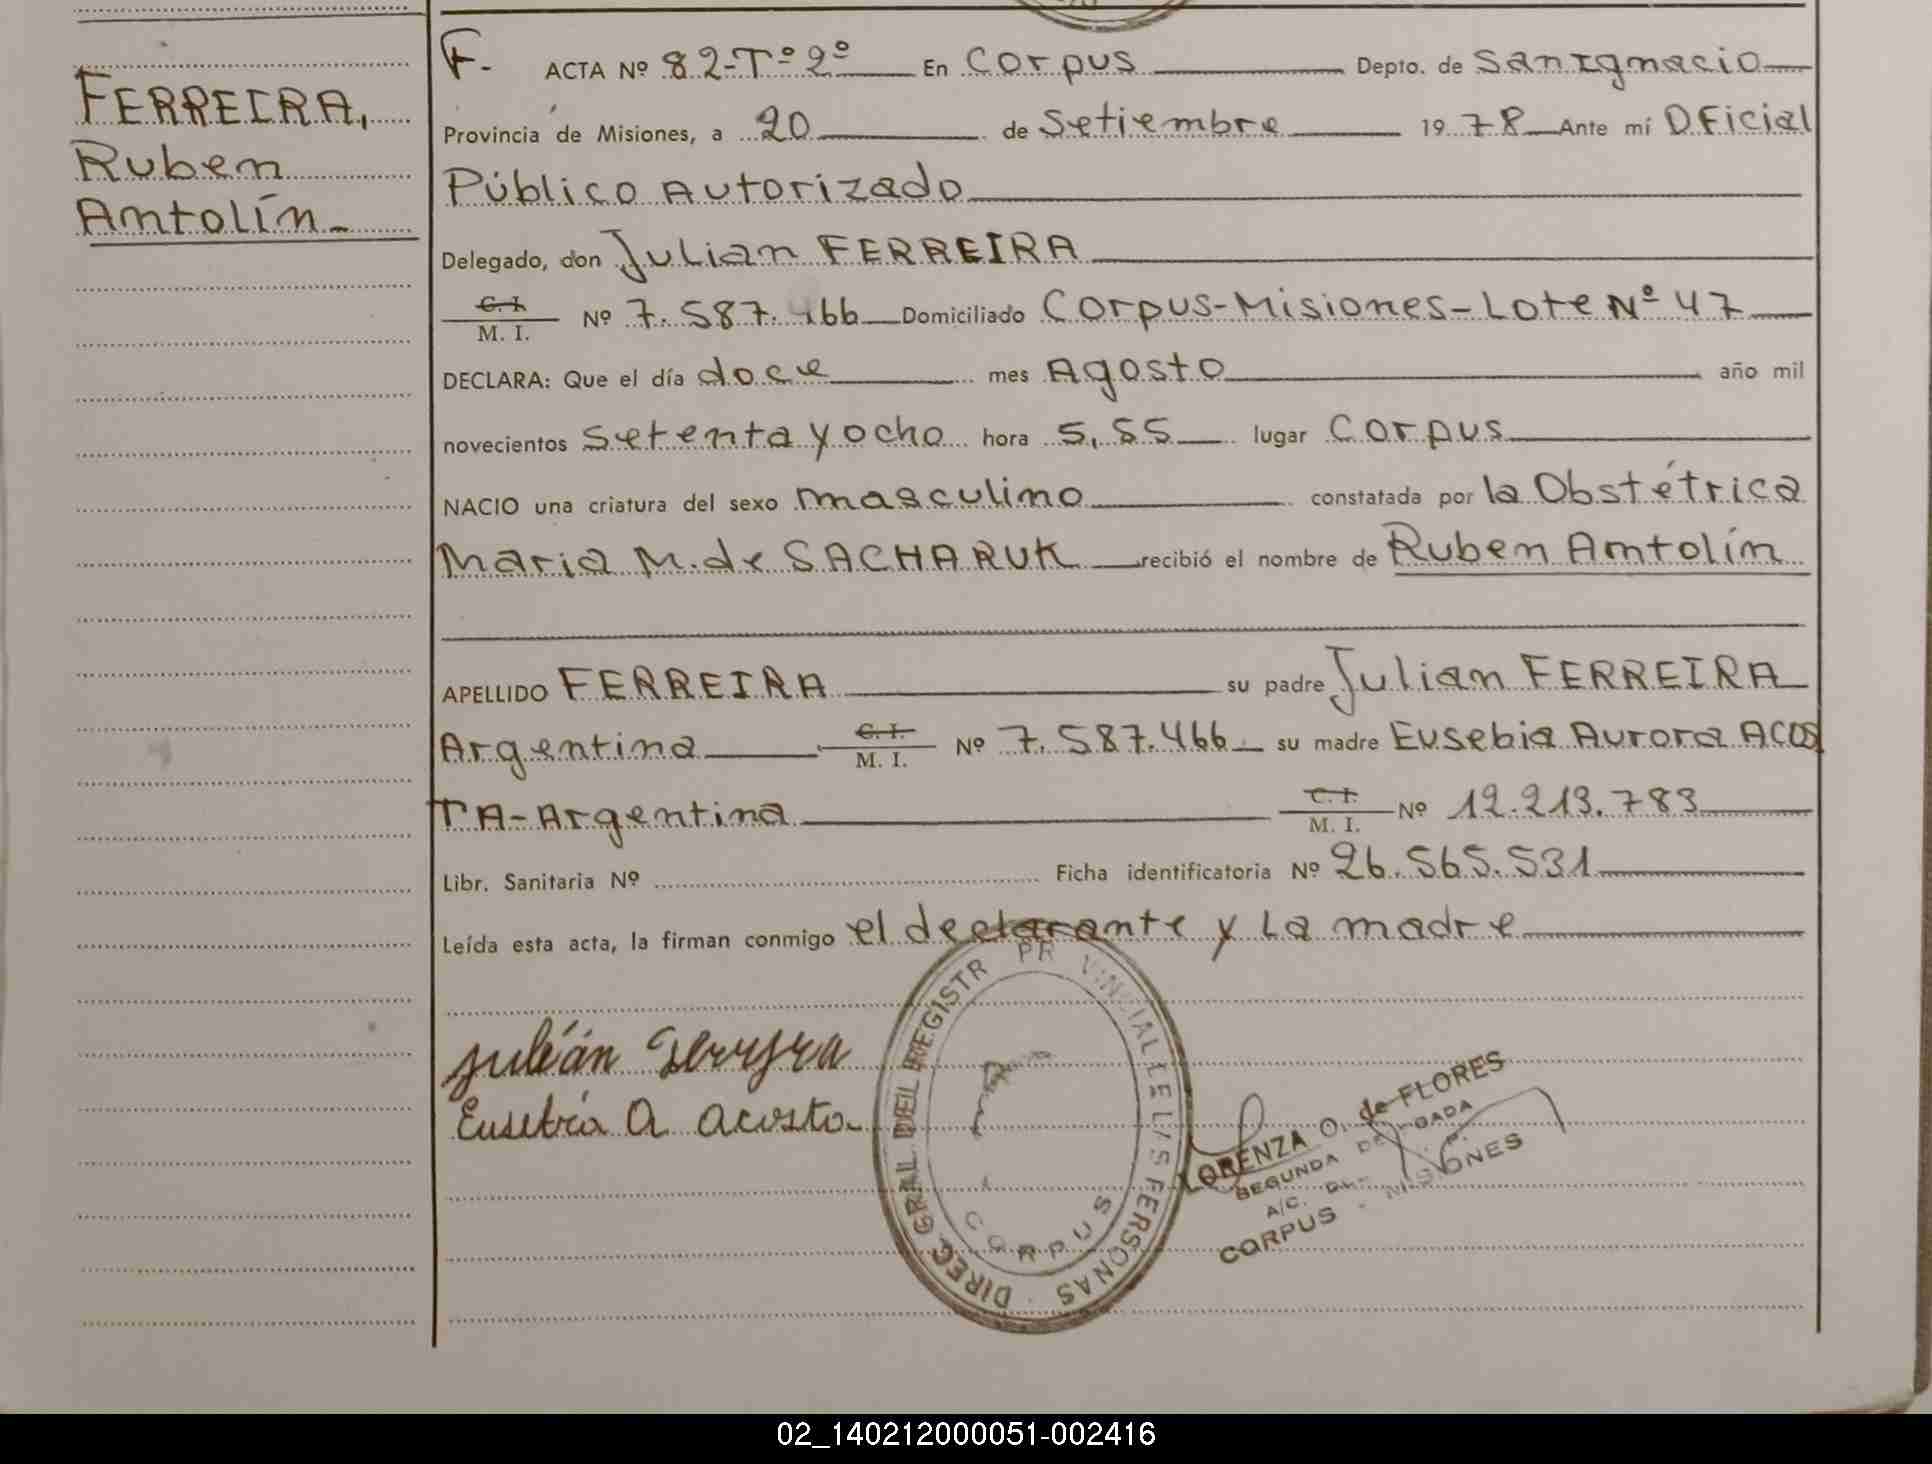 FERREIRA,
Ruben
Antolín-
F. ACTA Nº 82-Tº 2º En Corpus Depto. de San Ignacio
Provincia de Misiones, a 20 de Setiembre 1978 Ante mí Oficial
Público Autorizado
Delegado, don Julian FERREIRA
C.I. M. I. Nº 7.587.466 Domiciliado Corpus-Misiones-Lote Nº 47
DECLARA: Que el día doce mes Agosto año mil
novecientos setenta y ocho hora 5,55 lugar Corpus
NACIO una criatura del sexo masculino constatada por la Obstétrica
Maria M. de SACHARUK recibió el nombre de Ruben Antolín
APELLIDO FERREIRA su padre Julian FERREIRA
Argentina C.I. M. I. Nº 7.587.466 su madre Eusebia Aurora ACOS
TA-Argentina C.I. M. I. Nº 12.213.783
Libr. Sanitaria Nº Ficha identificatoria Nº 26.565.531
Leída esta acta, la firman conmigo el declarante y La madre
Julián Ferreyra
Eusebia A acosta
DIREC. GRAL DEL REGISTR PR VINCIAL DE LAS PERSONAS
CORPUS
LORENZA O. de FLORES
SEGUNDA DELEGADA
A/C.
CORPUS - MISIONES
02_140212000051-002416